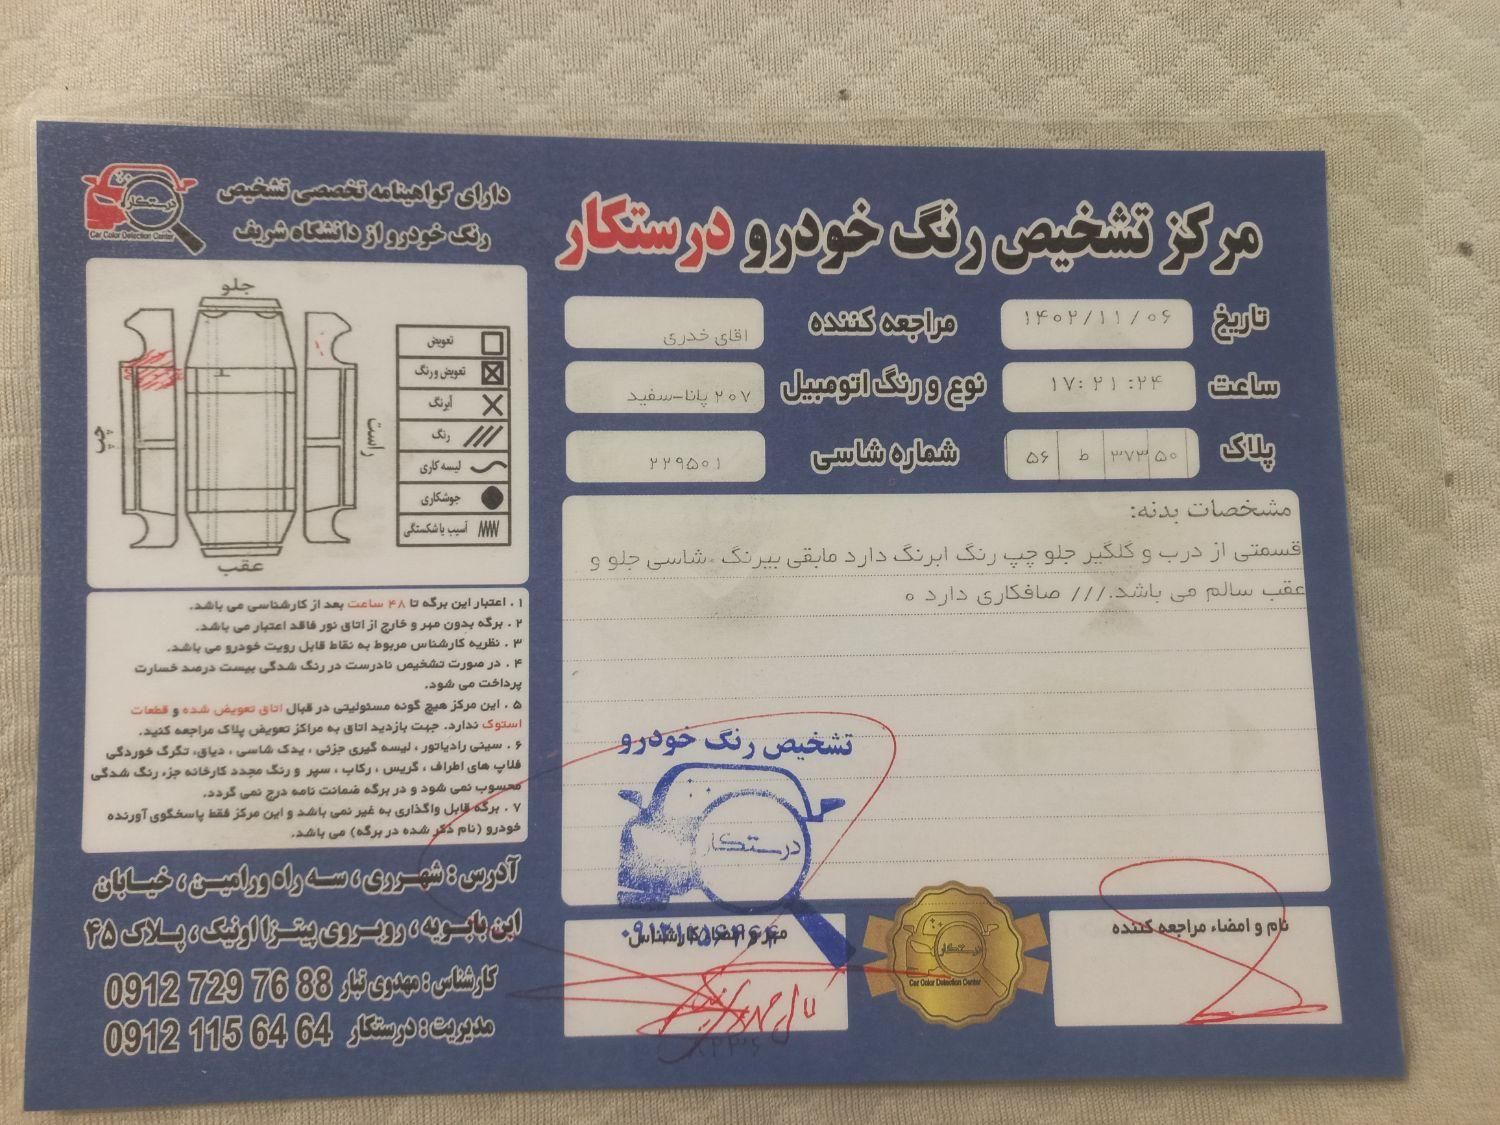 مرکز تشخیص رنگ خودرو درستکار
دارای گواهینامه تخصصی تشخیص
رنگ خودرو از دانشگاه شریف
درستکار
Car Color Detection Center
تاریخ ۱۴۰۲/۱۱/۰۶ مراجعه کننده اقای خدری
ساعت ۱۷:۲۱:۲۴ نوع و رنگ اتومبیل ۲۰۷ پانا-سفید
پلاک ۵۰ ۳۷۳ ط ۵۶ شماره شاسی ۲۲۹۵۰۱
مشخصات بدنه:
قسمتی از درب و گلگیر جلو چپ رنگ ابرنگ دارد مابقی بیرنگ .شاسی جلو و
عقب سالم می باشد./// صافکاری دارد ه
جلو
راست
چپ
عقب
تعویض
تعویض و رنگ
آبرنگ
رنگ
لیسه کاری
جوشکاری
آسیب یا شکستگی
۱ . اعتبار این برگه تا ۴۸ ساعت بعد از کارشناسی می باشد.
۲ . برگه بدون مهر و خارج از اتاق نور فاقد اعتبار می باشد.
۳ . نظریه کارشناس مربوط به نقاط قابل رویت خودرو می باشد.
۴ . در صورت تشخیص نادرست در رنگ شدگی بیست درصد خسارت
پرداخت می شود.
۵ . این مرکز هیچ گونه مسئولیتی در قبال اتاق تعویض شده و قطعات
استوک ندارد. جهت بازدید اتاق به مراکز تعویض پلاک مراجعه کنید.
۶ . سینی رادیاتور ، لیسه گیری جزئی ، یدک شاسی ، دیاق، تگرگ خوردگی
فلاپ های اطراف ، گریس ، رکاب ، سپر و رنگ مجدد کارخانه جزء رنگ شدگی
محسوب نمی شود و در برگه ضمانت نامه درج نمی گردد.
۷ . برگه قابل واگذاری به غیر نمی باشد و این مرکز فقط پاسخگوی آورنده
خودرو (نام ذکر شده در برگه) می باشد.
تشخیص رنگ خودرو
درستکار
مهر و امضاء کارشناس
درستکار
Car Color Detection Center
نام و امضاء مراجعه کننده
آدرس : شهرری ، سه راه ورامین ، خیابان
ابن بابویه ، روبروی پیتزا اونیک ، پلاک ۴۵
کارشناس : مهدوی تبار 0912 729 76 88
مدیریت : درستکار 0912 115 64 64